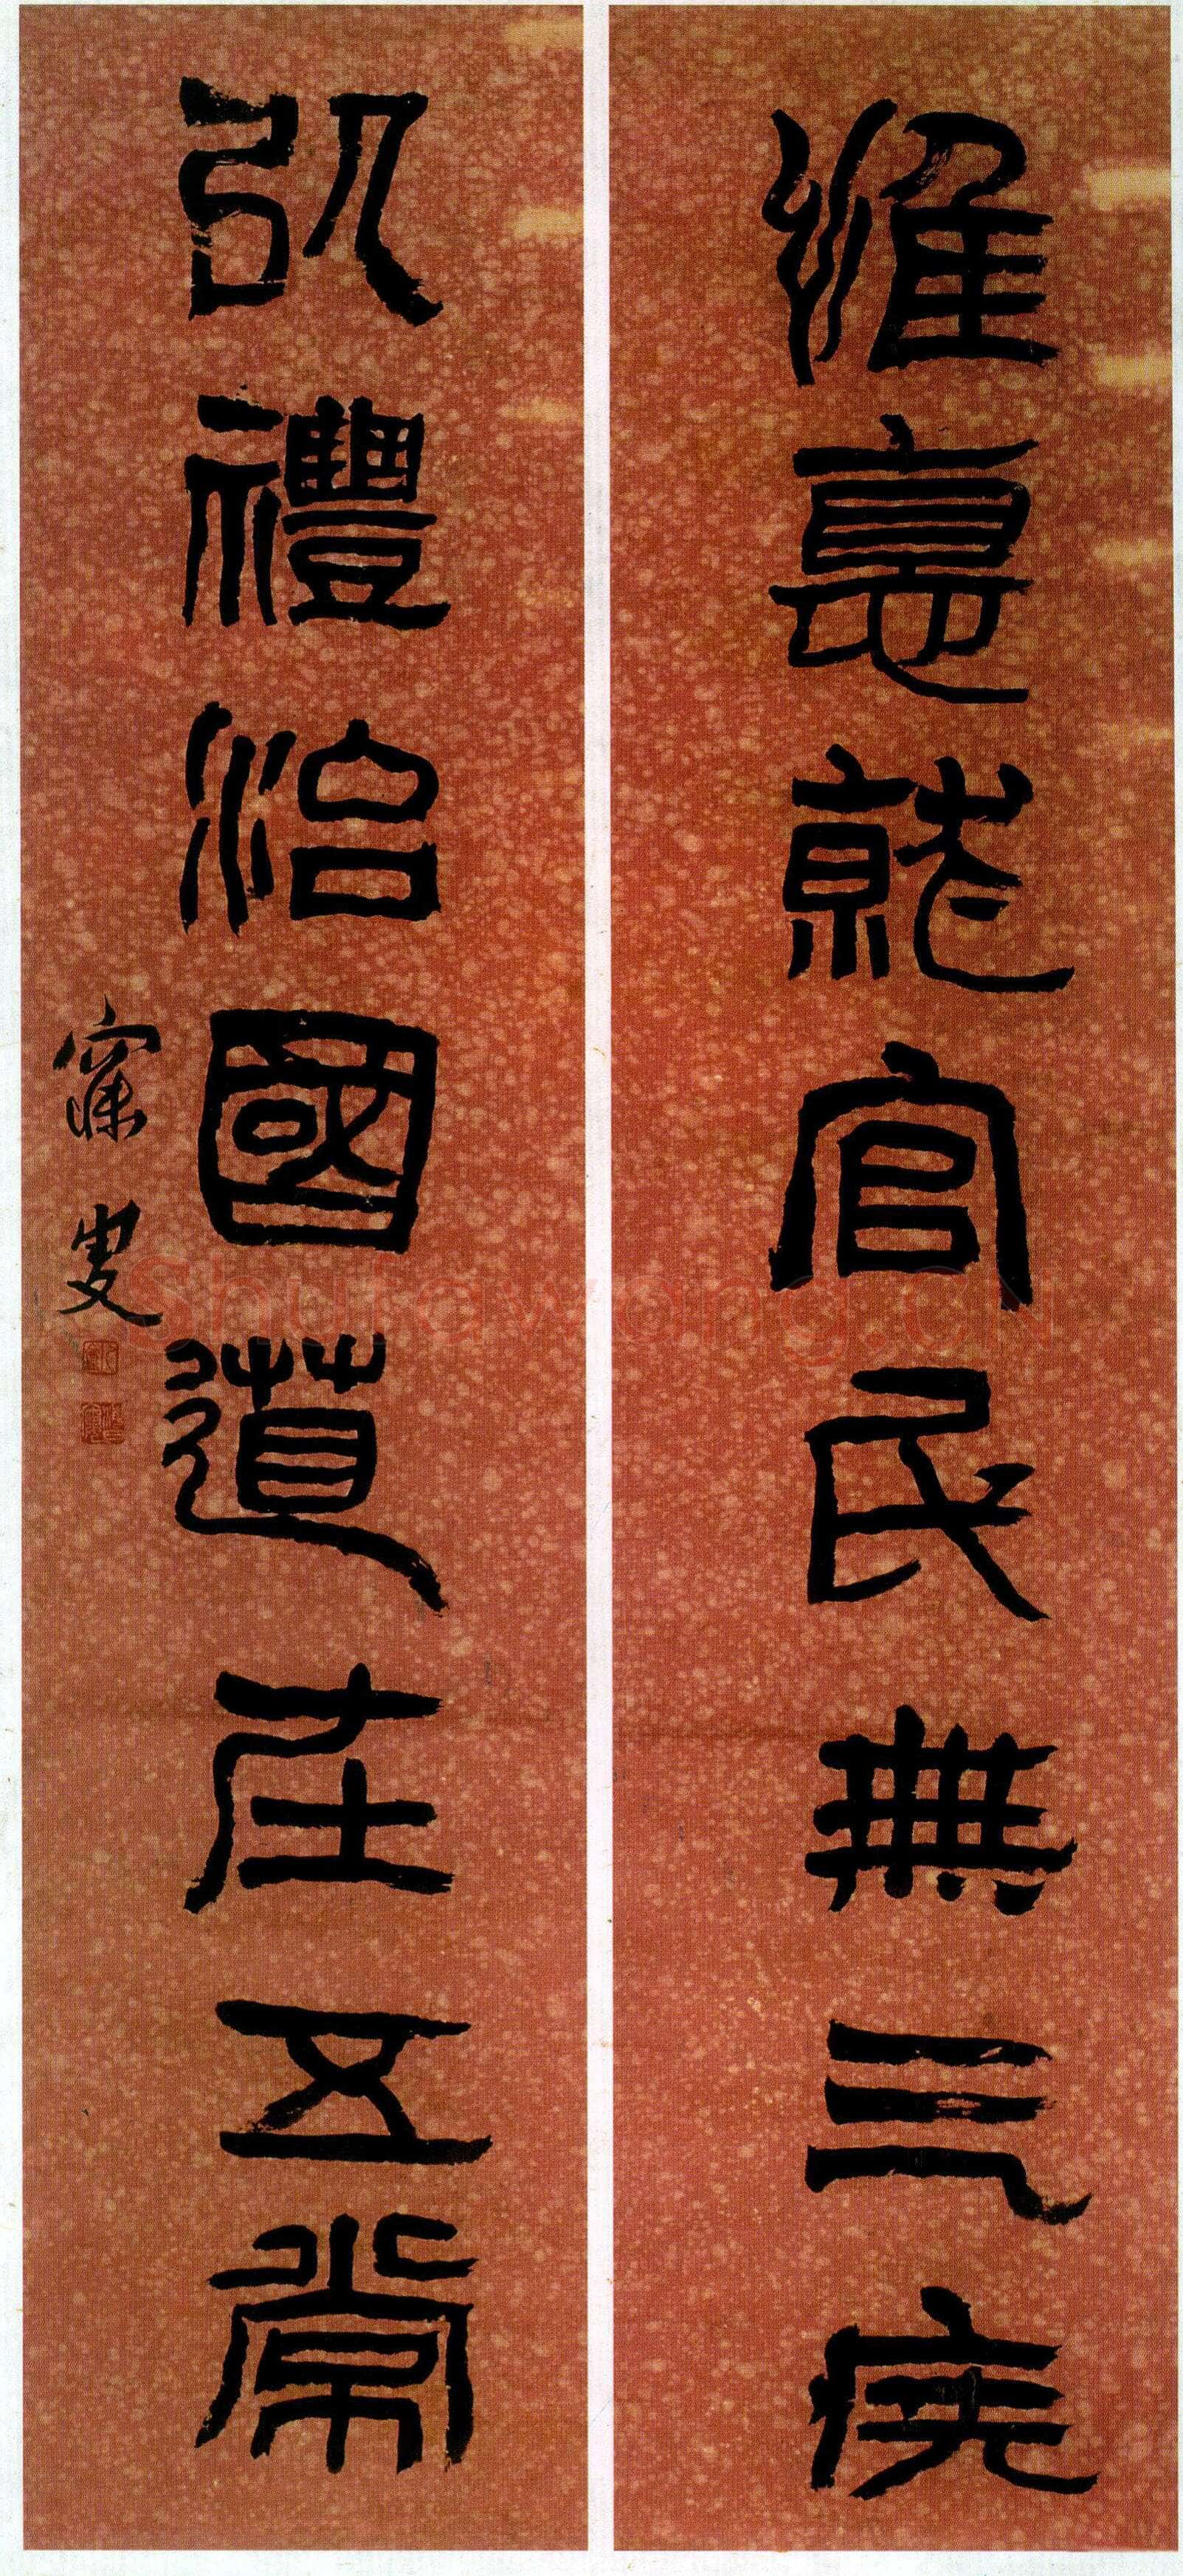 惟惪就官民無三疾
以禮治國道在五常
寐叟
Shufawang.CN